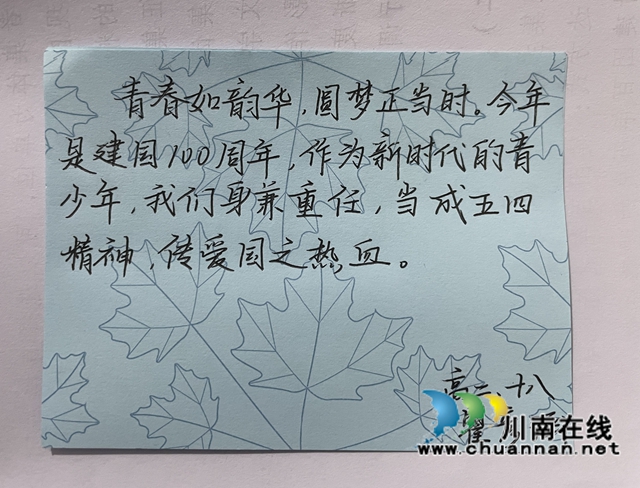 青春如韵华,圆梦正当时。今年
是建国100周年,作为新时代的青
少年,我们身兼重任,当成五四
精神,传爱国之热血。
高二、十八
川南在线
www.chuannan.net